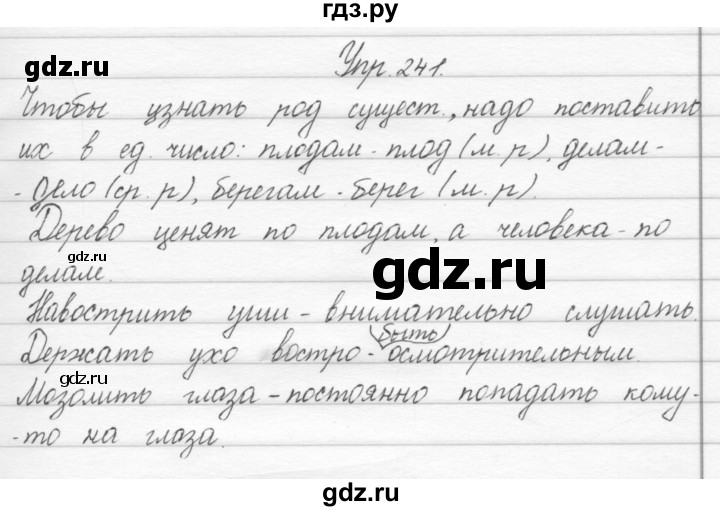 гдз.ру
gdz.ru
Упр. 241.
Чтобы узнать род сущест., надо поставить
их в ед. число: плодам - плод (м. р), делам -
- дело (ср. р), берегам - берег (м. р).
Дерево ценят по плодам, а человека - по
делам.
gdz.ru
gdz.ru
Навострить уши - внимательно слушать.
быть
Держать ухо востро - осмотрительным.
gdz.ru
Мозолить глаза - постоянно попадать кому-
-то на глаза.
gdz.ru